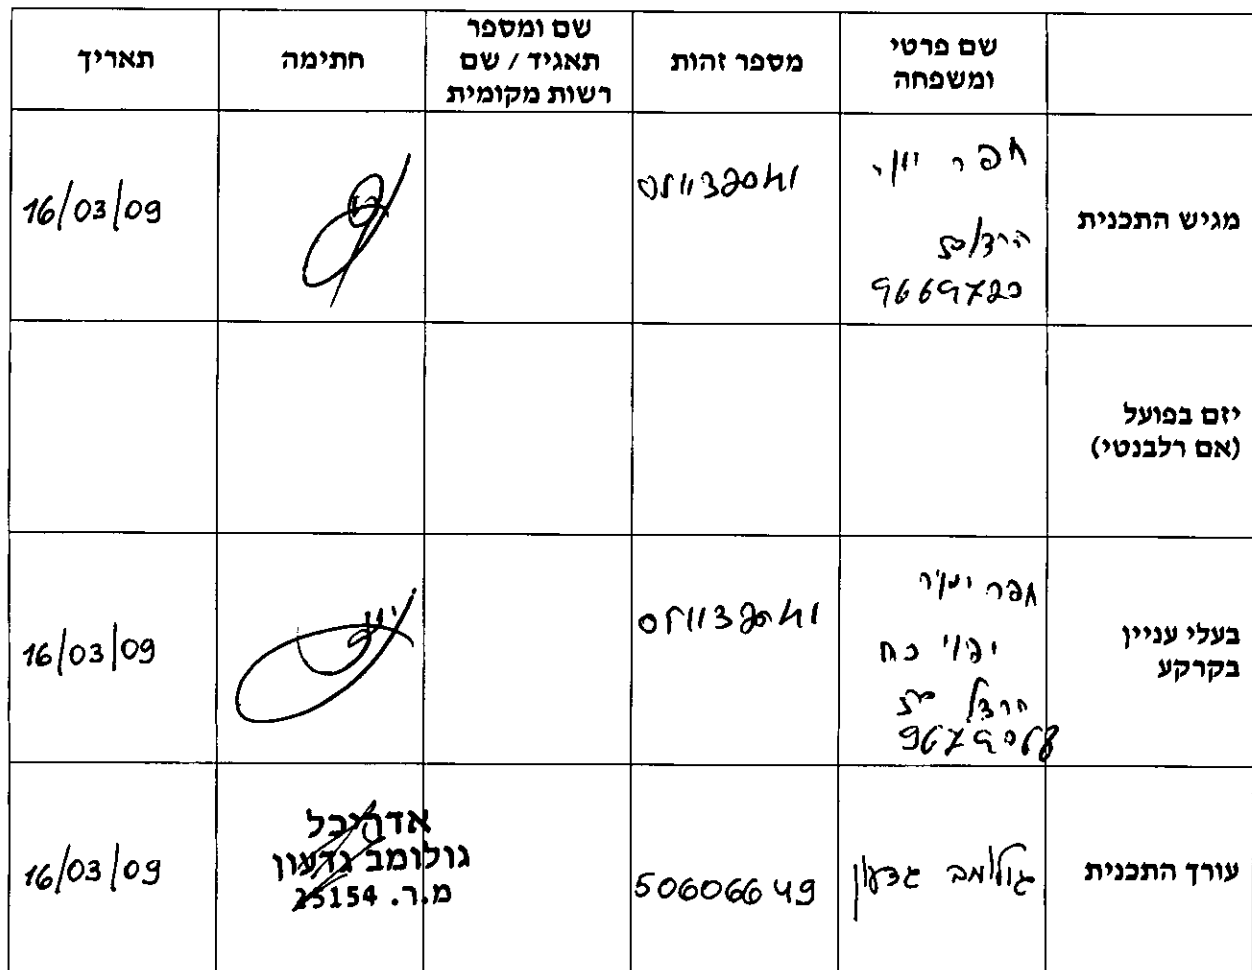 שם פרטי ומשפחה
מספר זהות
שם ומספר תאגיד / שם רשות מקומית
חתימה
תאריך
מגיש התכנית
חפר
9669720
16/03/09
יזם בפועל
(אם רלבנטי)
בעלי עניין בקרקע
חפר
יפוי כח
הרצל
16/03/09
עורך התכנית
גולומב גדעון
50606649
אדריכל
גולומב גדעון
מ.ר. 25154
16/03/09